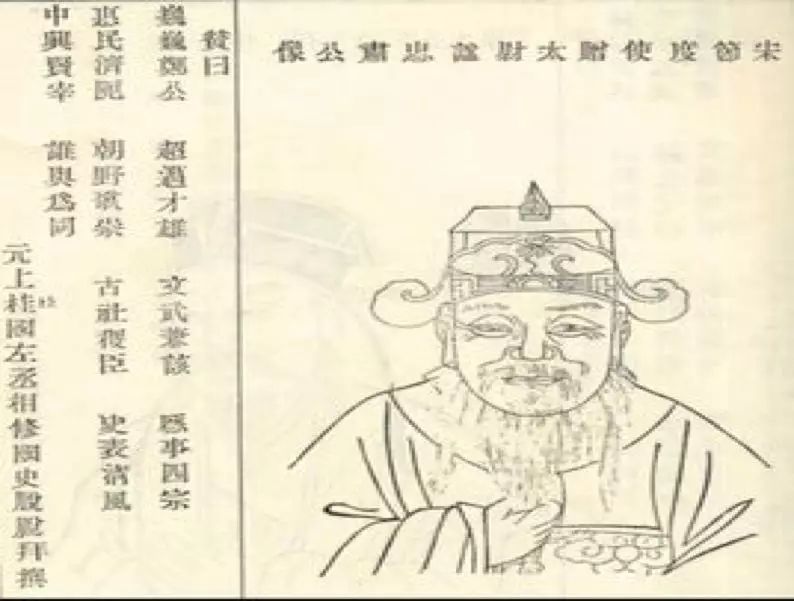 宋節度使贈太尉諡忠肅公像
贊曰
巍巍鄭公 超邁才雄 文武兼該 歷事四宗
惠民濟 朝野敬崇 古社稷臣 史表清風
中興賢宰 誰與爲同
元上桂國左丞相修國史脫脫拜撰